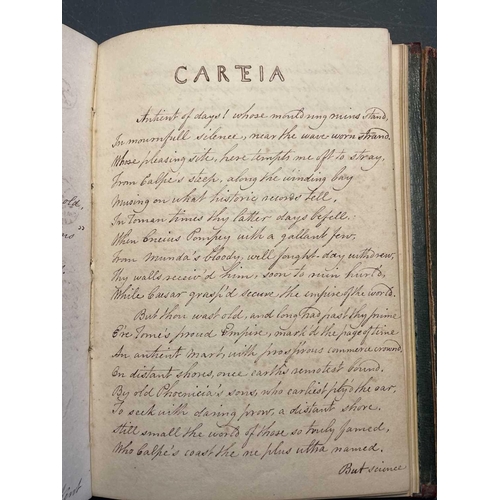 CARTEIA
Antient of days! whose mouldring ruins stand,
In mournfull silence, near the wave worn strand.
Whose pleasing site, here tempts me oft to stray,
From Calpe's steep, along the winding bay
Musing on what historic records tell,
In Roman times thy latter days befell.
When Cneius Pompey with a gallant few,
From Munda's bloody, well fought-day withdrew,
Thy walls receiv'd him, soon to ruin hurl'd,
While Caesar grasp'd secure the empire of the world.
But thou wast old, and long had past thy prime
Ere Rome's proud Empire, mark'd the page of time
An antient mart, with prosp'rous commerce crown'd
On distant shores, once earth's remotest bound.
By old Phoenicia's sons, who earliest ply'd the oar,
To seek with daring prow, a distant shore,
Still small the world of those so truly famed,
Who Calpe's coast the ne plus ultra named.
But science
old,
"
first